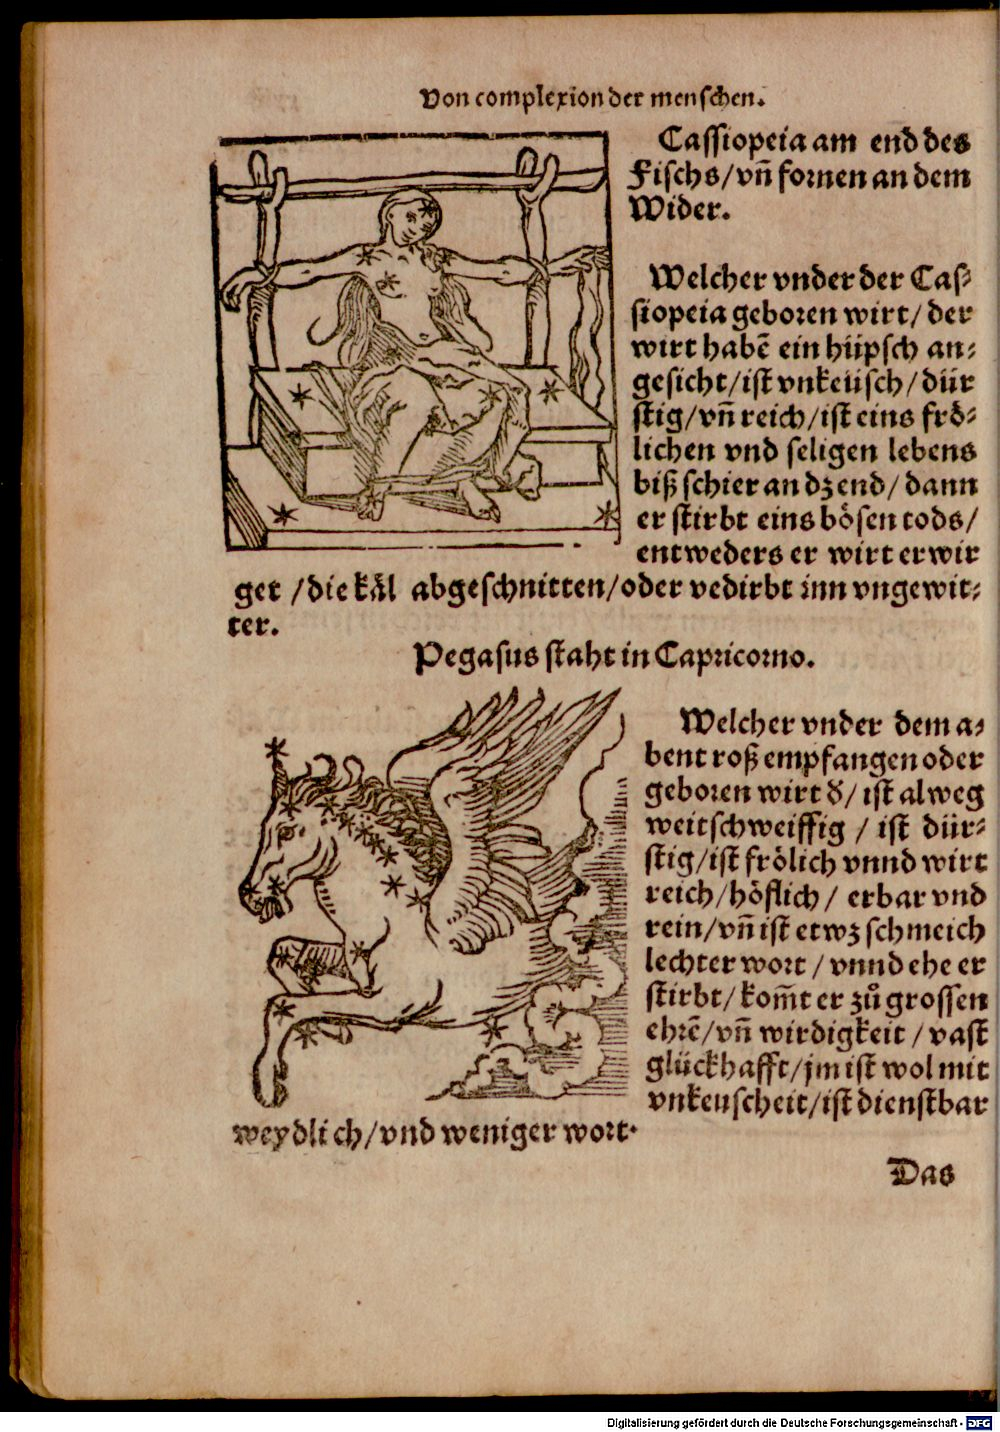 Von complexion der menschen.
Cassiopeia am end des
Fischs/vñ fornen an dem
Wider.
Welcher vnder der Cas⸗
siopeia geboren wirt/ der
wirt habẽ ein hüpsch an⸗
gesicht/ist vnkeüsch/dür
stig/vñ reich/ist eins frö⸗
lichen vnd seligen lebens
biß schier an dz end/ dann
er stirbt eins bösen tods/
entweders er wirt erwir
get /die käl abgeschnitten/oder vedirbt inn vngewit⸗
ter.
Pegasus staht in Capricorno.
Welcher vnder dem a⸗
bent roß empfangen oder
geboren wirt d/ ist alweg
weitschweiffig / ist dür⸗
stig/ist frölich vnnd wirt
reich/höflich/ erbar vnd
rein/vñ ist etwz schmeich
lechter wort / vnnd ehe er
stirbt/ kom̃t er zů grossen
ehrẽ/vñ wirdigkeit / vast
glückhafft/jm ist wol mit
vnkeuscheit/ist dienstbar
weydlich/vnd weniger wort.
Das
Digitalisierung gefördert durch die Deutsche Forschungsgemeinschaft - DFG